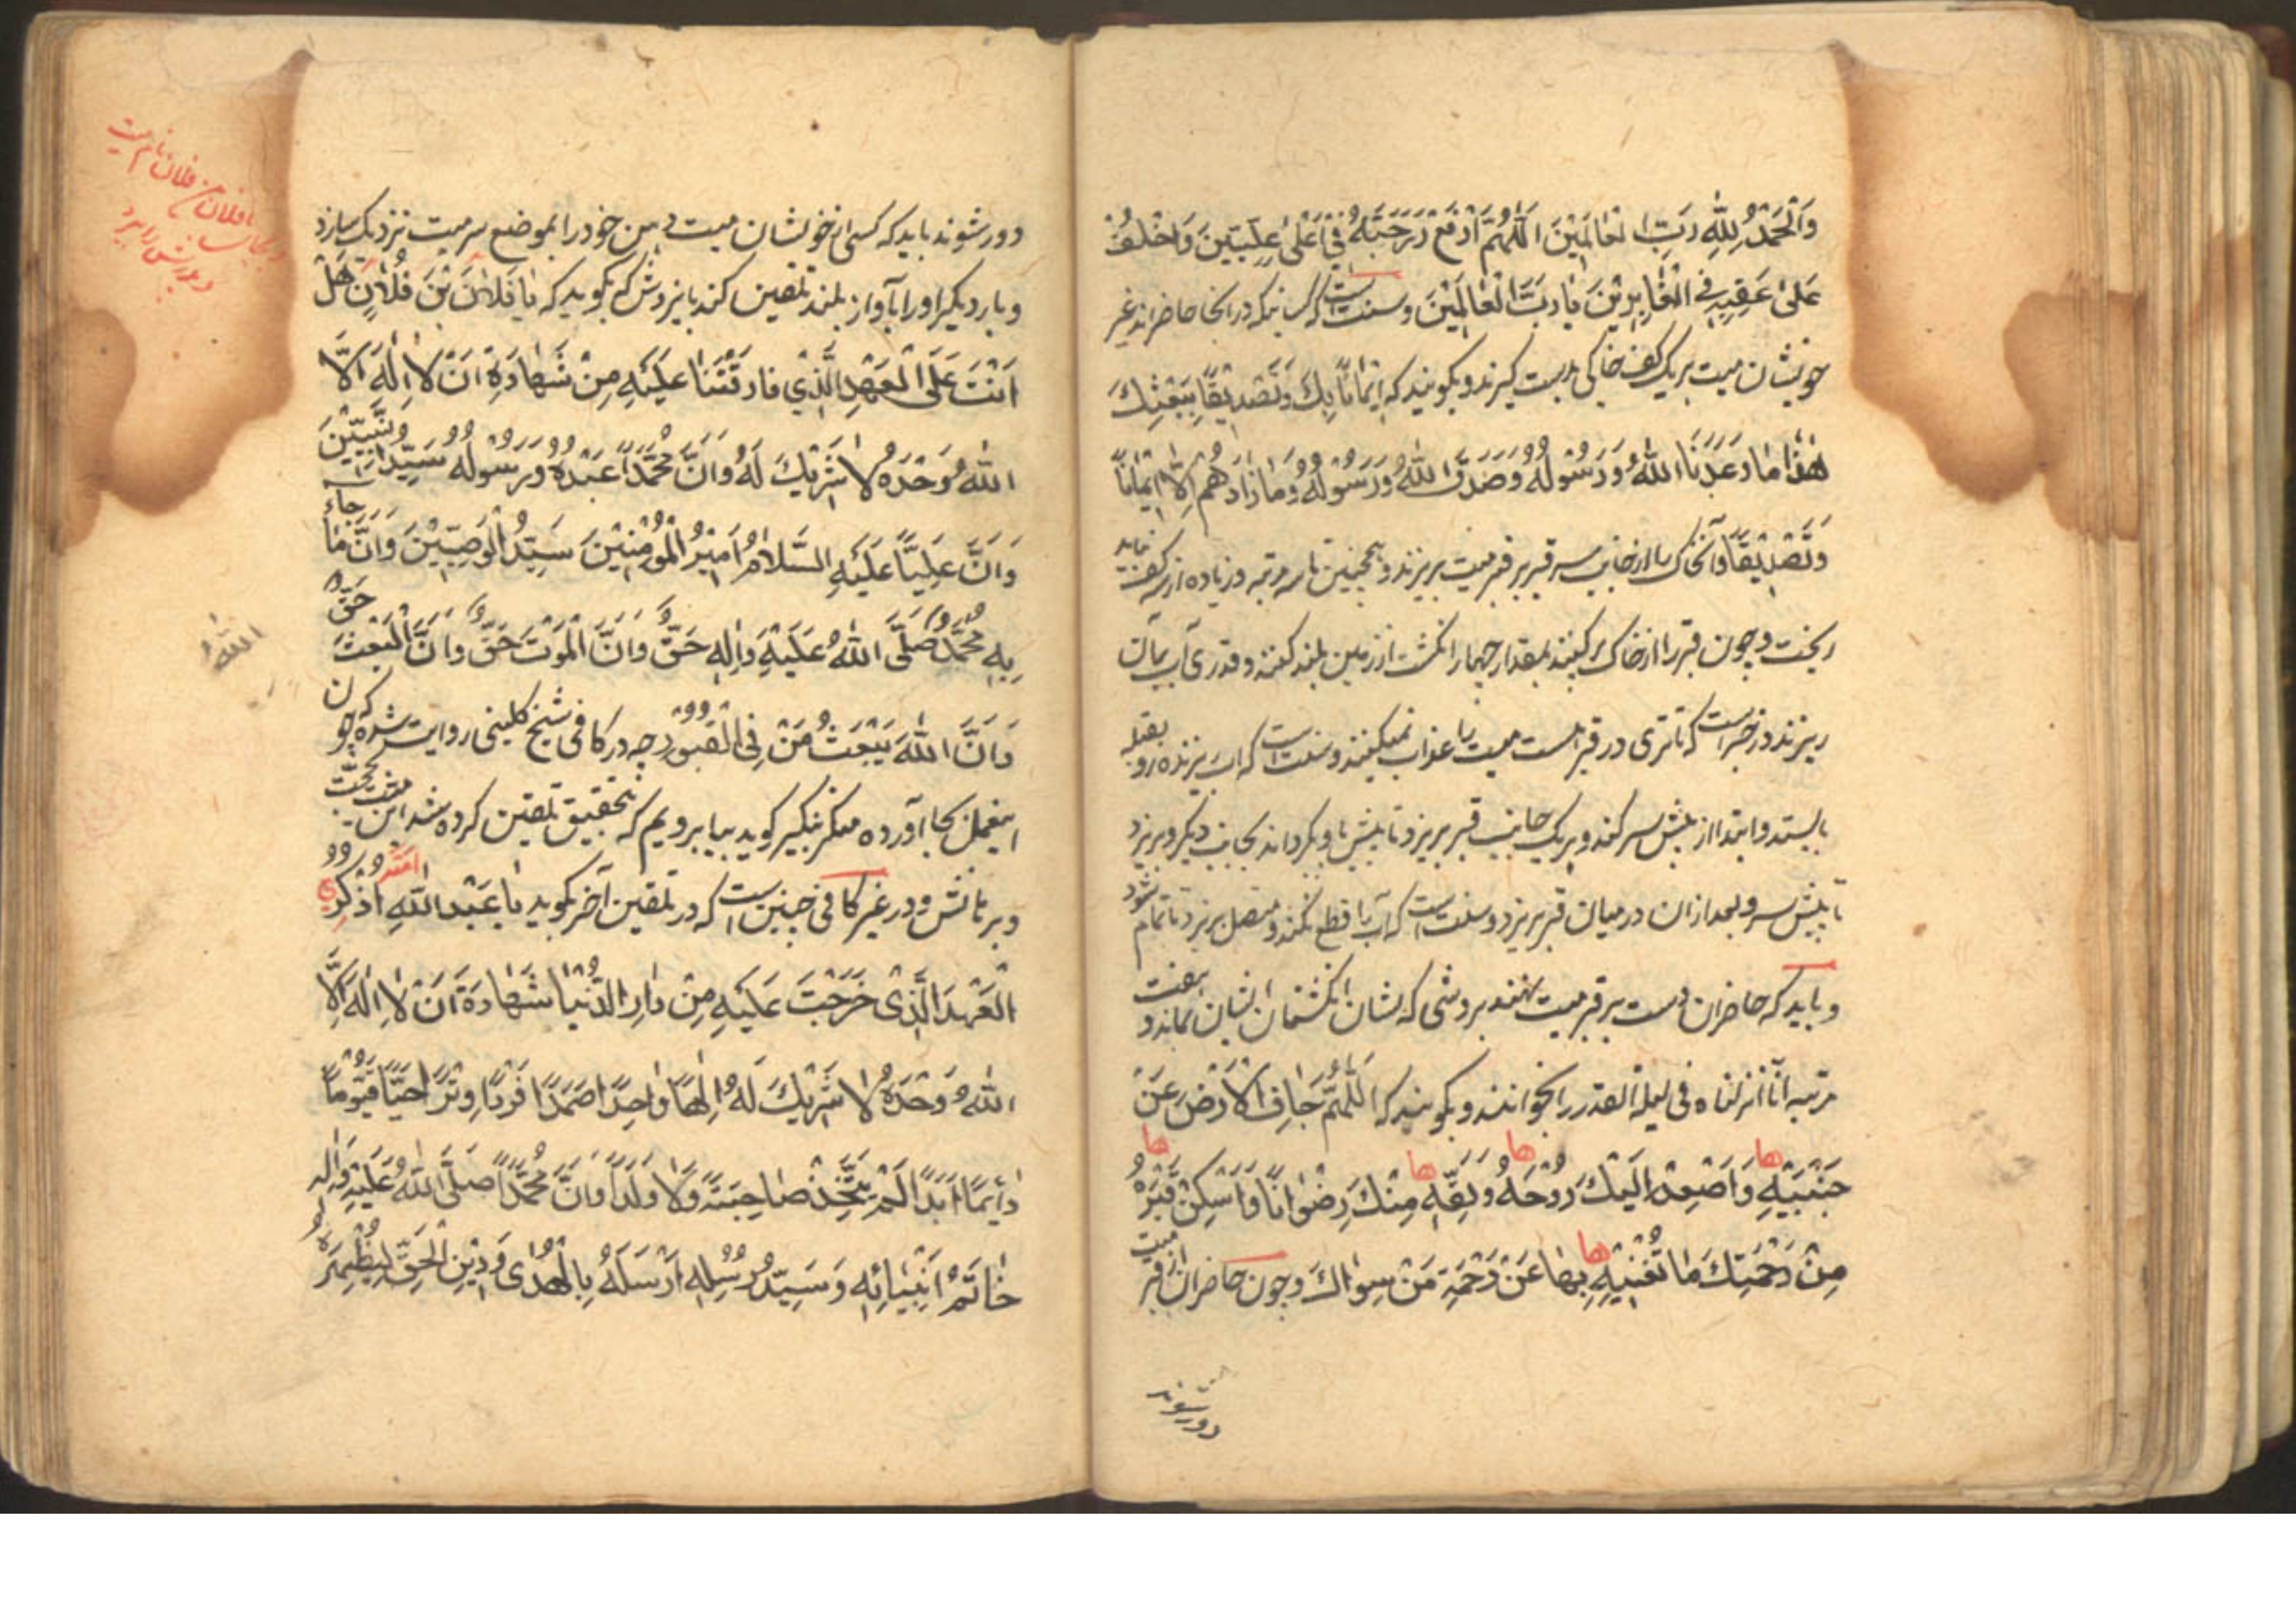 وَالْحَمْدُ لِلّٰهِ رَبِّ الْعَالَمِيْنَ اَللّٰهُمَّ ارْفَعْ دَرَجَتَهُ فِيْ اَعْلٰى عِلِّيّيْنَ وَاخْلُفْ
عَلٰى عَقِبِهِ فِي الْغَابِرِيْنَ يَا رَبَّ الْعَالَمِيْنَ وسنت است که کسانیکه در انجا حاضراند غیر
خویشان میت بریک کف خاکی بدست گیرند و بگویند که اِيْمَانًا بِكَ وَتَصْدِيْقًا بِبَعْثِكَ
هٰذَا مَا وَعَدَنَا اللّٰهُ وَرَسُوْلُهُ وَصَدَقَ اللّٰهُ وَرَسُوْلُهُ وَمَا زَادَهُمْ اِلَّا اِيْمَانًا
وَتَصْدِيْقًا وآنخاک را از جانب سر قبر بر قبر میت بریزند و همچنین تا سه مرتبه و زیاده از سه کف نباید
ریخت و چون قبر را از خاک پر کنند بمقدار چهار انگشت از زمین بلند کنند و قدری آب بر آن
ریزند و در خبر است که تا تری در قبر هست میت را عذاب نمیکنند و سنت است که آب ریزنده رو بقبله
بایستد و ابتدا از پیش سر کند و بریک جانب قبر بریزد تا پیش پا و بگرداند بجانب دیگر و بریزد
تا پیش سر و بعد ازان در میان قبر بریزد و سنت است که آب را قطع نکند و متصل بریزد تا تمام شود
و باید که حاضران دست بر قبر میت نهند بروشی که نشان انگشتان ایشان بماند و هفت
مرتبه انا انزلناه فی لیلة القدر را بخوانند و بگویند که اَللّٰهُمَّ جَافِ الْاَرْضَ عَنْ
جَنْبَيْهِ وَاَصْعِدْ اِلَيْكَ رُوْحَهُ وَلَقِّهِ مِنْكَ رِضْوَانًا وَاَسْكِنْ قَبْرَهُ
ها ها ها ها
مِنْ رَحْمَتِكَ مَا تُغْنِيْهِ بِهَا عَنْ رَحْمَةِ مَنْ سِوَاكَ و چون حاضران از قبر میت
ها
دور شوند
دور شوند باید که کسی از خویشان میت دهن خود را بموضع سر میت نزدیک سازد
و بار دیگر او را بآواز بلند تلقین کند باین روش که بگوید که يَا فُلَانَ بْنَ فُلَانٍ هَلْ
اَنْتَ عَلَى الْعَهْدِ الَّذِيْ فَارَقْتَنَا عَلَيْهِ مِنْ شَهَادَةِ اَنْ لَا اِلٰهَ اِلَّا
اللّٰهُ وَحْدَهُ لَا شَرِيْكَ لَهُ وَاَنَّ مُحَمَّدًا عَبْدُهُ وَرَسُوْلُهُ سَيِّدُ النَّبِيّيْنَ
وَاَنَّ عَلِيًّا عَلَيْهِ السَّلَامُ اَمِيْرُ الْمُؤْمِنِيْنَ سَيِّدُ الْوَصِيّيْنَ وَاَنَّ مَا جَاءَ
بِهِ مُحَمَّدٌ صَلَّى اللّٰهُ عَلَيْهِ وَاٰلِهِ حَقٌّ وَاَنَّ الْمَوْتَ حَقٌّ وَاَنَّ الْبَعْثَ حَقٌّ
وَاَنَّ اللّٰهَ يَبْعَثُ مَنْ فِي الْقُبُوْرِ چه در کافی شیخ کلینی روایت شده که چون
اینعمل بجا آورده منکر بنکیر گوید بیا برویم که بتحقیق تلقین کرده شد این میت بحجت
و برهانش و در غیر کافی چنین است که در تلقین آخر بگوید يَا عَبْدَ اللّٰهِ اُذْكُرْ
امة ی
الْعَهْدَ الَّذِيْ خَرَجْتَ عَلَيْهِ مِنْ دَارِ الدُّنْيَا شَهَادَةَ اَنْ لَا اِلٰهَ اِلَّا
اللّٰهُ وَحْدَهُ لَا شَرِيْكَ لَهُ اِلٰهًا وَاحِدًا صَمَدًا فَرْدًا وِتْرًا حَيًّا قَيُّوْمًا
دَائِمًا اَبَدًا لَمْ يَتَّخِذْ صَاحِبَةً وَلَا وَلَدًا وَاَنَّ مُحَمَّدًا صَلَّى اللّٰهُ عَلَيْهِ وَاٰلِهِ
خَاتَمُ اَنْبِيَائِهِ وَسَيِّدُ رُسُلِهِ اَرْسَلَهُ بِالْهُدٰى وَدِيْنِ الْحَقِّ لِيُظْهِرَهُ
یا فلان بن فلان نام میت
و پدرش را برد
اللّٰهُ